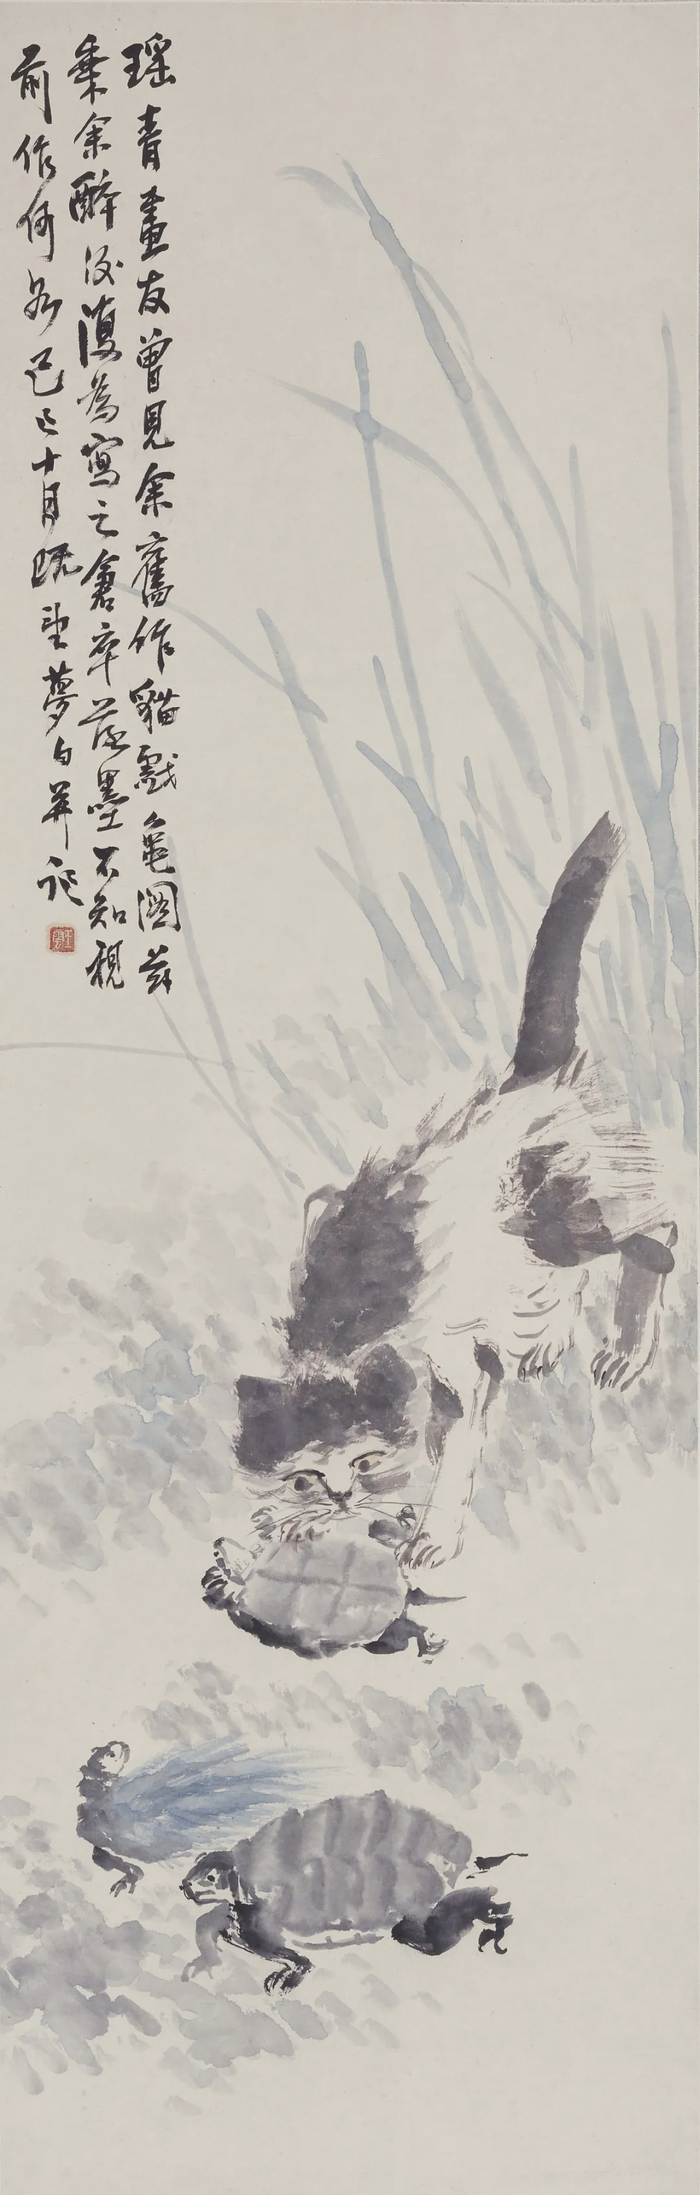 瑶青畫友曾見余舊作貓戲龜圖茲
乘余醉後復為寫之倉卒落墨不知視
前作何如己巳十月既望夢白并記